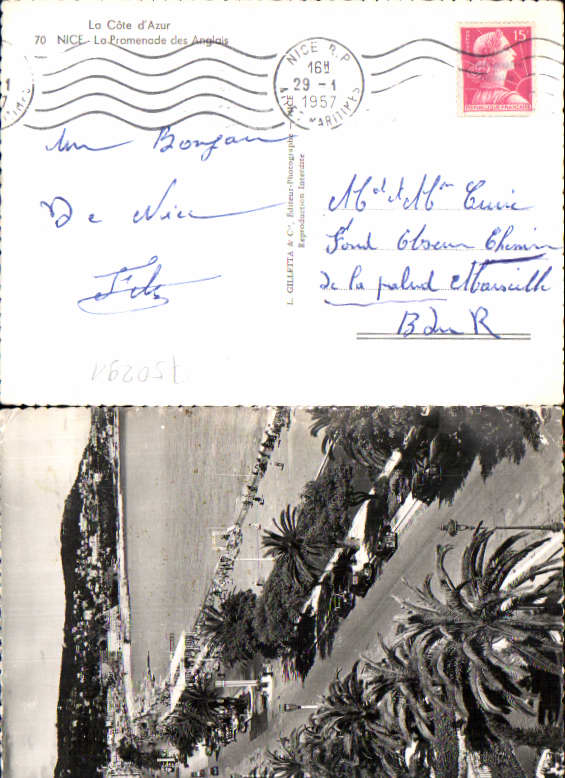 La Côte d'Azur
70 NICE - La Promenade des Anglais
NICE R.P.
16H
29 - 1
1957
ALPES MARITIMES
15F
REPUBLIQUE FRANÇAISE
L. GILLETTA & Cie, Editeur-Photographe - NICE
Reproduction Interdite
un Bonjour
De Nice
Mr et Mme
Fond Obscur Chemin
de la palud Marseille
B du R
750291